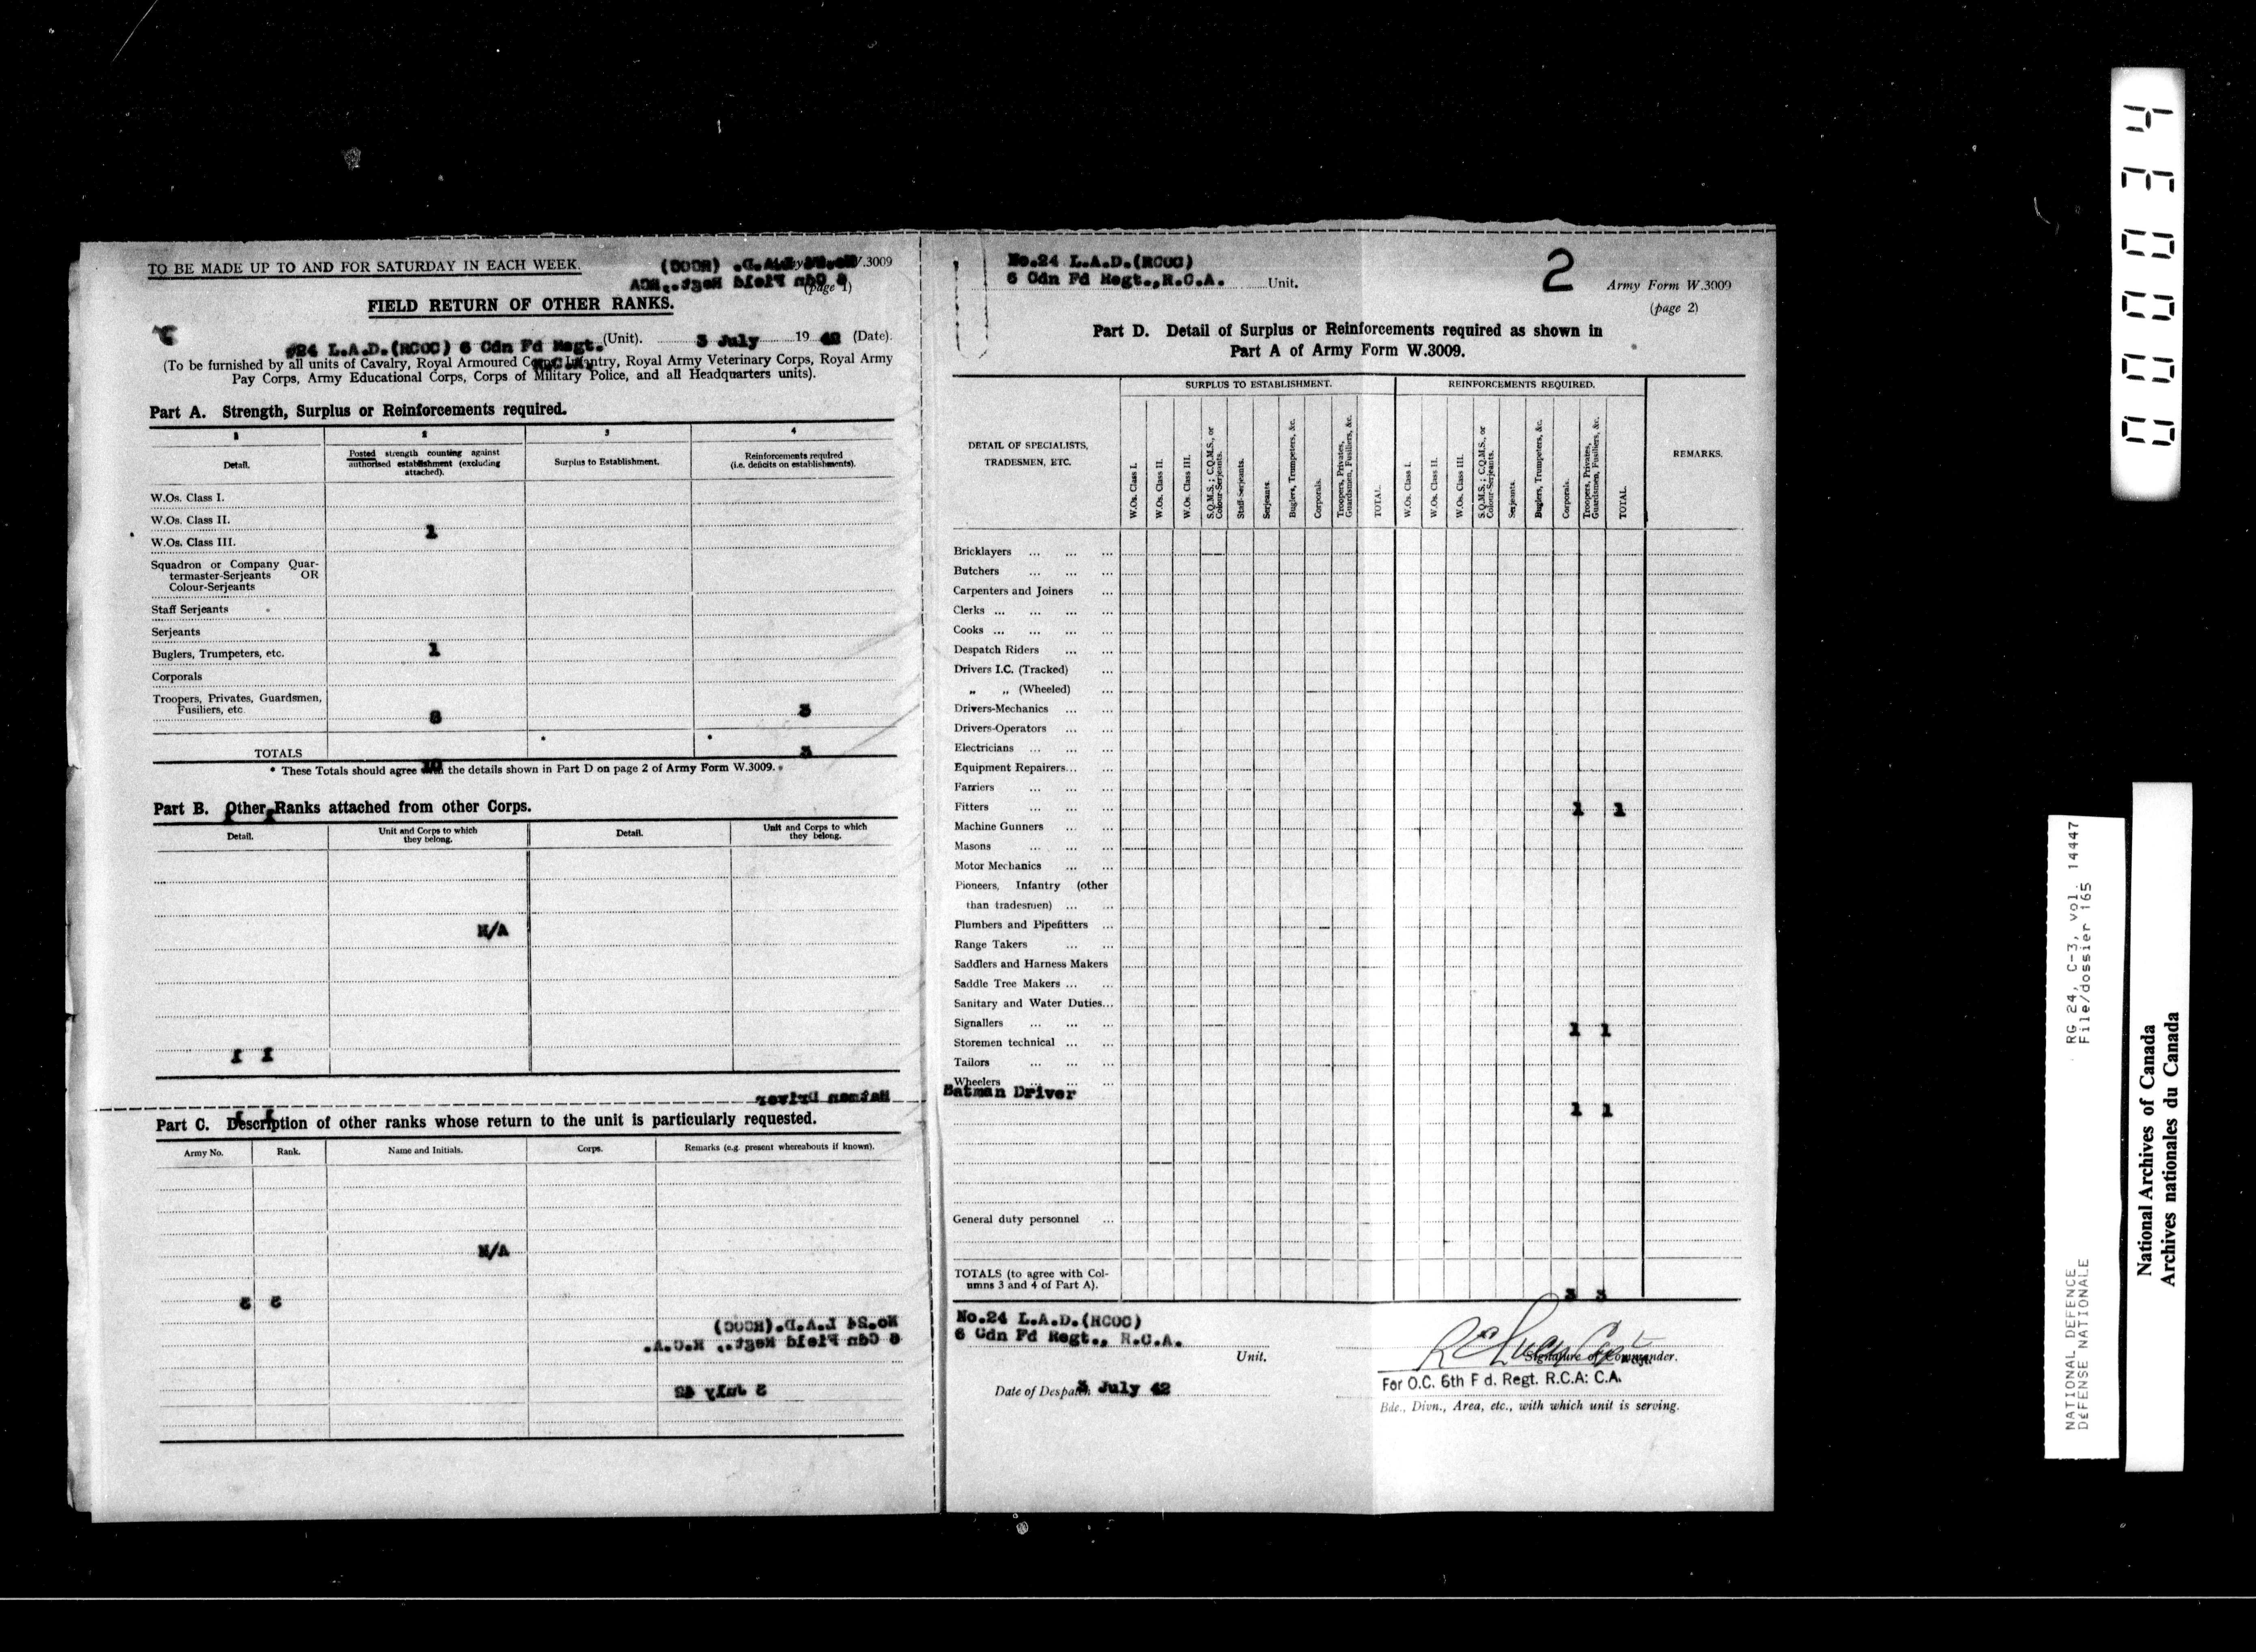 TO BE MADE UP TO AND FOR SATURDAY IN EACH WEEK.
W.3009
(page 1)
FIELD RETURN OF OTHER RANKS.
#24 L.A.D.(RCOC) 6 Cdn Fd Regt. (Unit). 3 July 19 42 (Date).
R.C.A.
(To be furnished by all units of Cavalry, Royal Armoured Corps, Infantry, Royal Army Veterinary Corps, Royal Army
Pay Corps, Army Educational Corps, Corps of Military Police, and all Headquarters units).
Part A. Strength, Surplus or Reinforcements required.
1 2 3 4
Detail.
Posted strength counting against
authorised establishment (excluding
attached).
Surplus to Establishment.
Reinforcements required
(i.e. deficits on establishments).
W.Os. Class I.
W.Os. Class II.
1
W.Os. Class III.
Squadron or Company Quar-
termaster-Serjeants OR
Colour-Serjeants
Staff Serjeants
Serjeants
Buglers, Trumpeters, etc. 1
Corporals
Troopers, Privates, Guardsmen,
Fusiliers, etc 8 3
TOTALS 10 3
* These Totals should agree with the details shown in Part D on page 2 of Army Form W.3009.
Part B. Other Ranks attached from other Corps.
Detail.
Unit and Corps to which
they belong.
Detail.
Unit and Corps to which
they belong.
N/A
Part C. Description of other ranks whose return to the unit is particularly requested.
Army No. Rank. Name and Initials. Corps. Remarks (e.g. present whereabouts if known).
N/A
No.24 L.A.D.(RCOC)
6 Cdn Fd Regt.,R.C.A. Unit.
2
Army Form W.3009
(page 2)
Part D. Detail of Surplus or Reinforcements required as shown in
Part A of Army Form W.3009.
DETAIL OF SPECIALISTS,
TRADESMEN, ETC.
SURPLUS TO ESTABLISHMENT.
W.Os. Class I.
W.Os. Class II.
W.Os. Class III.
S.Q.M.S.; C.Q.M.S., or
Colour-Serjeants.
Staff-Serjeants.
Serjeants.
Buglers, Trumpeters, &c.
Corporals.
Troopers, Privates,
Guardsmen, Fusiliers, &c.
TOTAL.
REINFORCEMENTS REQUIRED.
W.Os. Class I.
W.Os. Class II.
W.Os. Class III.
S.Q.M.S.; C.Q.M.S., or
Colour-Serjeants.
Serjeants.
Buglers, Trumpeters, &c.
Corporals.
Troopers, Privates,
Guardsmen, Fusiliers, &c.
TOTAL.
REMARKS.
Bricklayers ... ... ...
Butchers ... ... ...
Carpenters and Joiners ...
Clerks ... ... ... ...
Cooks ... ... ... ...
Despatch Riders ... ...
Drivers I.C. (Tracked) ...
„ „ (Wheeled) ...
Drivers-Mechanics ... ...
Drivers-Operators ... ...
Electricians ... ... ...
Equipment Repairers... ...
Farriers ... ... ...
Fitters ... ... ... 1 1
Machine Gunners ... ...
Masons ... ... ...
Motor Mechanics ... ...
Pioneers, Infantry (other
than tradesmen) ... ...
Plumbers and Pipefitters ...
Range Takers ... ...
Saddlers and Harness Makers
Saddle Tree Makers ... ...
Sanitary and Water Duties...
Signallers ... ... ... 1 1
Storemen technical ... ...
Tailors ... ... ...
Wheelers ... ... ...
Batman Driver
1 1
General duty personnel ...
TOTALS (to agree with Col-
umns 3 and 4 of Part A). 3 3
No.24 L.A.D.(RCOC)
6 Cdn Fd Regt., R.C.A.
Unit.
Signature of Commander.
Date of Despatch 3 July 42
For O.C. 6th Fd. Regt. R.C.A: C.A.
Bde., Divn., Area, etc., with which unit is serving.
RG 24, C-3, vol. 14447
File/dossier 165
NATIONAL DEFENCE
DÉFENSE NATIONALE
National Archives of Canada
Archives nationales du Canada
000034